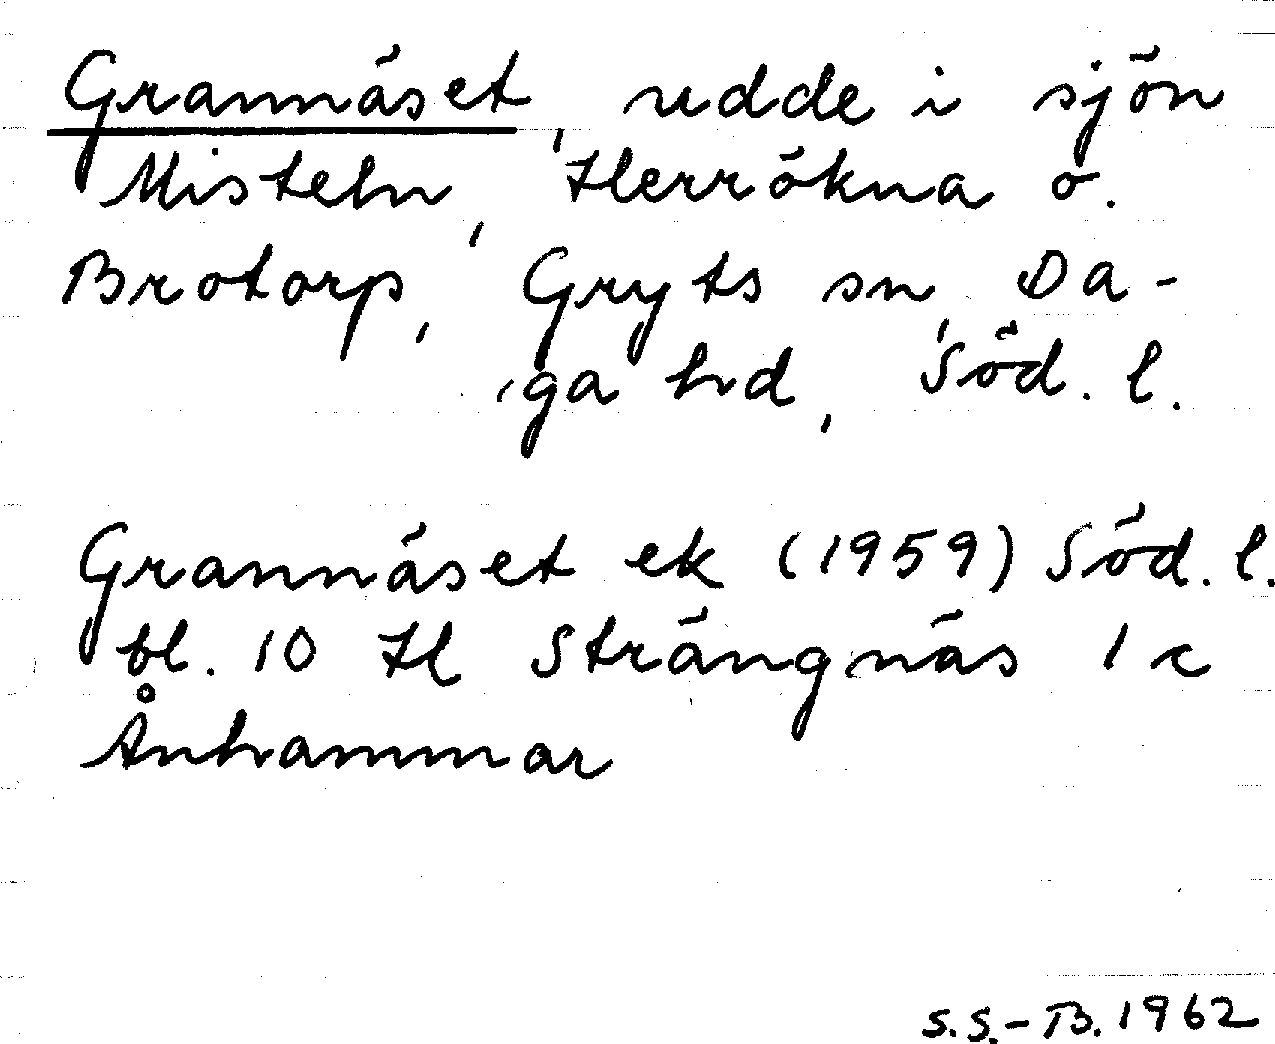 Grannäset, udde i sjön
Misteln, Herrökna o.
Brotorp, Gryts sn, Da-
ga hd, Söd. l.
Grannäset ek (1959) Söd. l.
bl. 10 H Strängnäs 1 c
Ånhammar
S.S.-B. 1962